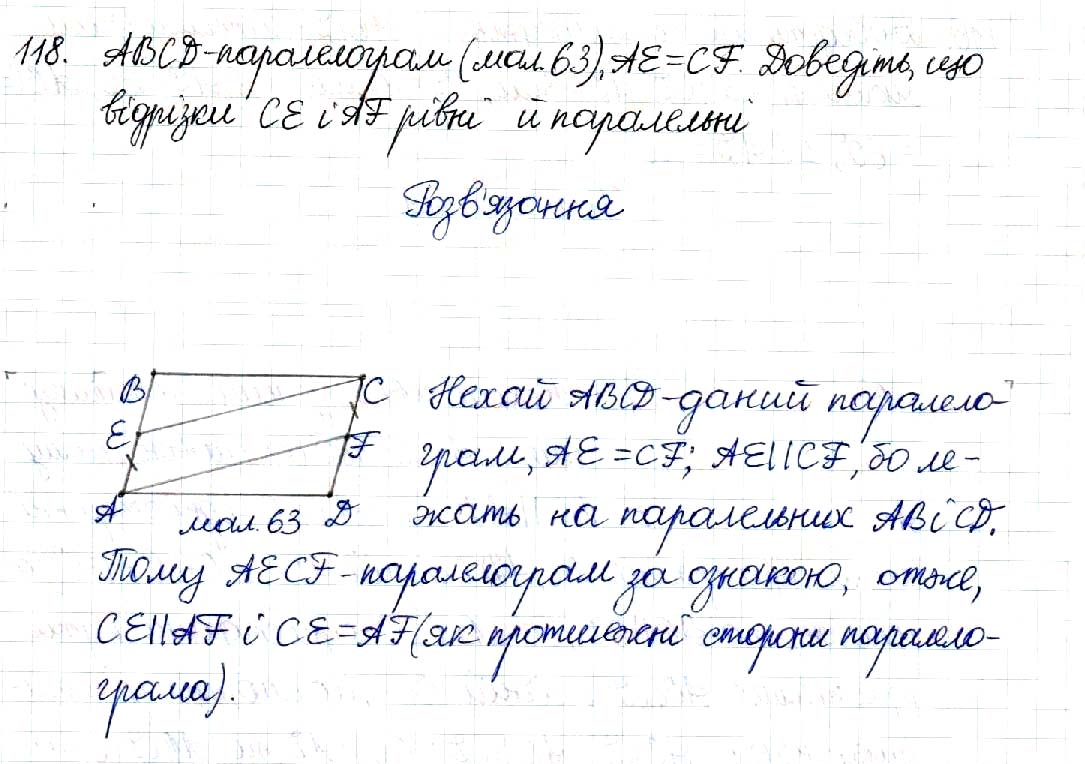 118. ABCD-паралелограм (мал. 63), AE=CF. Доведіть, що
відрізки CE і AF рівні й паралельні
Розв'язання
B
C
E
F
A
D
мал. 63
Нехай ABCD-даний парарело-
грам, AE=CF; AE||CF, бо ле-
жать на паралельних AB і CD.
Тому AECF-паралелограм за ознакою, отже,
CE||AF і CE=AF (як протилежні сторони паралело-
грама).